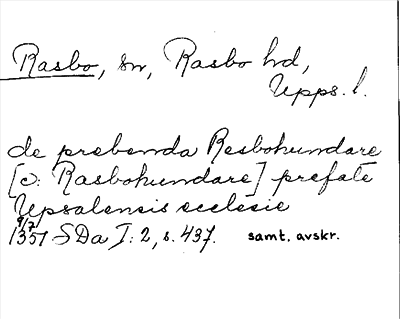 Rasbo, sn, Rasbo hd,
Upps. l.
de prebenda Resbohundare
[ɔ: Rasbohundare] prefate
Upsalensis ecclesie
9/7
1351 SDa I: 2, s. 437. samt. avskr.